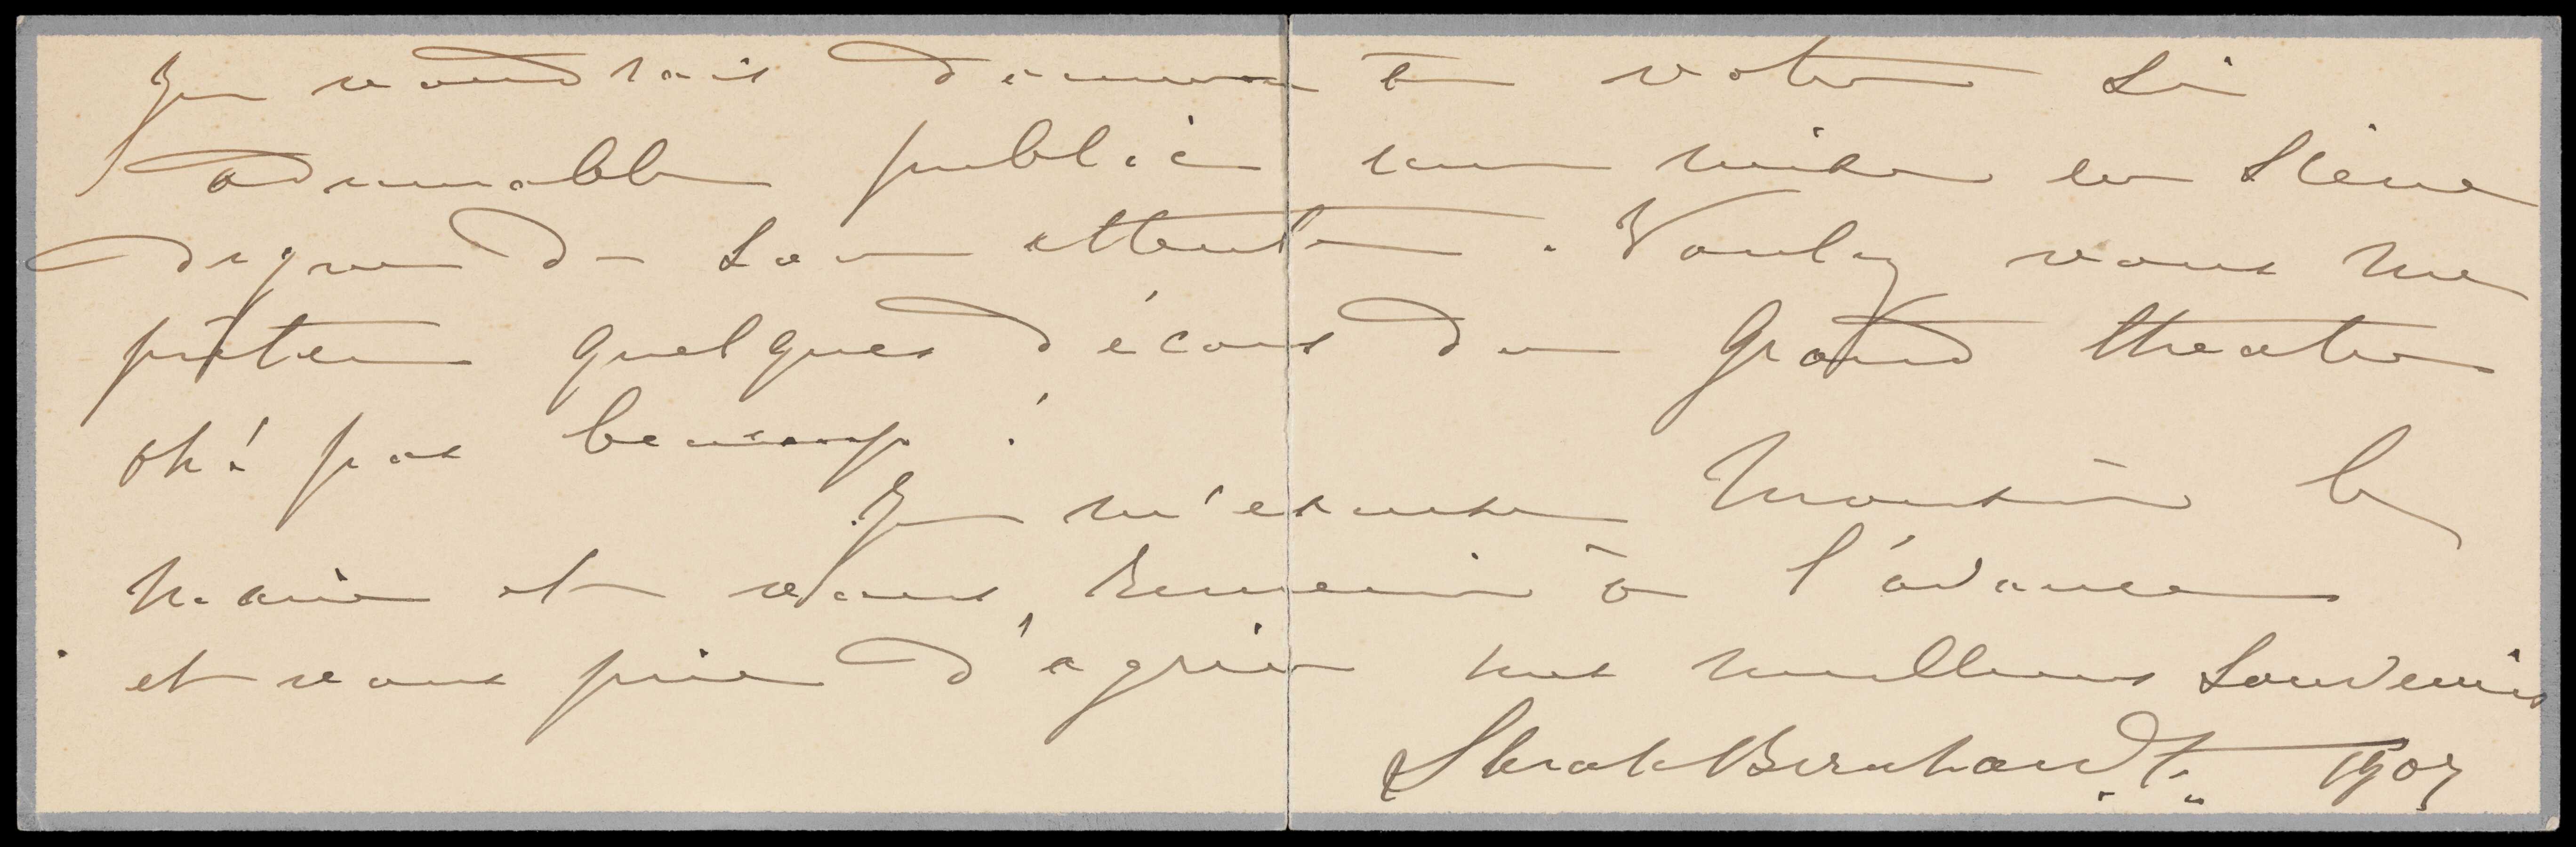 Je voudrais donner à votre si
admirable public une mise en scène
digne de son attente. Voulez vous me
prêter quelques décors du Grand theatre
oh! pas beaucoup!
Je m'excuse Monsieur le
Maire et vous remercie à l'avance
et vous prie d'agréer mes meilleurs souvenirs
Sarah Bernhardt